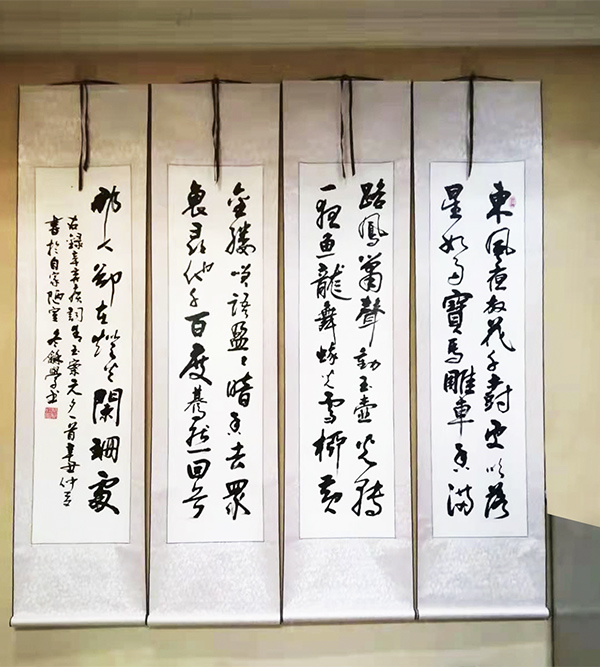 東風夜放花千樹更吹落
星如雨寶馬雕車香滿
路鳳簫聲動玉壺光轉
一夜魚龍舞蛾兒雪柳黃
金縷笑語盈盈暗香去眾
裏尋他千百度驀然回首
那人卻在燈火闌珊處
右錄辛棄疾詞青玉案元夕一首辛丑仲
書於自家陋室